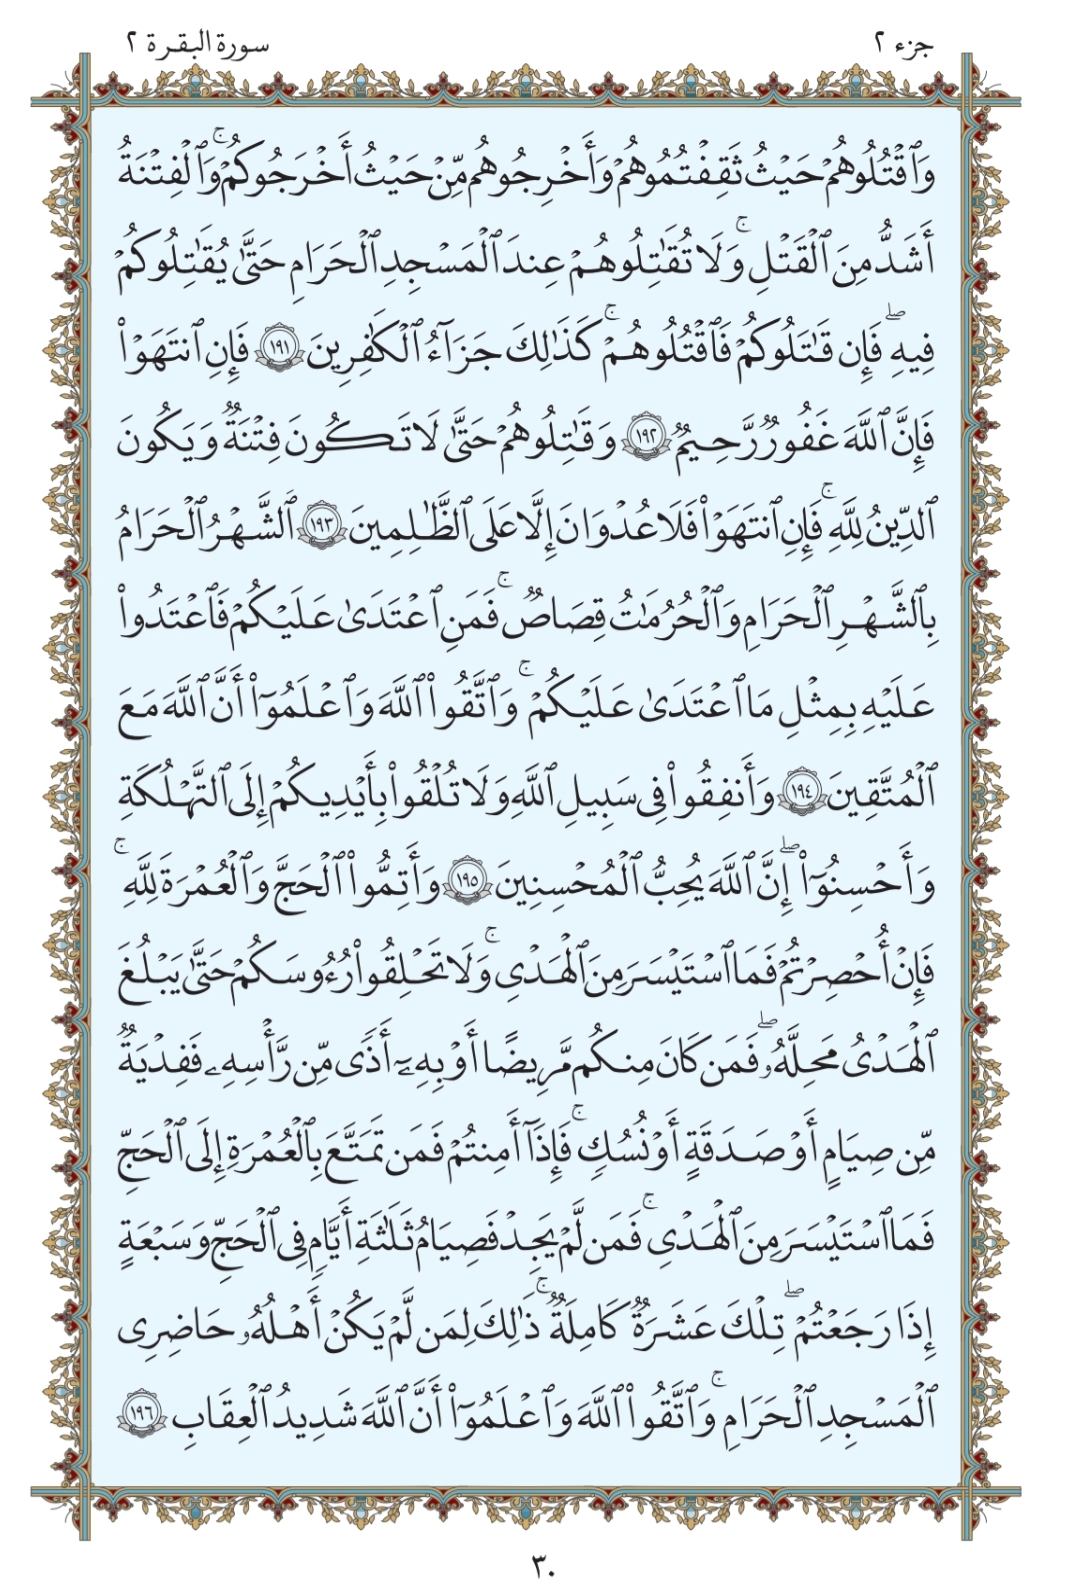 جزء ٢
سورة البقرة ٢
وَٱقْتُلُوهُمْ حَيْثُ ثَقِفْتُمُوهُمْ وَأَخْرِجُوهُم مِّنْ حَيْثُ أَخْرَجُوكُمْ ۚ وَٱلْفِتْنَةُ
أَشَدُّ مِنَ ٱلْقَتْلِ ۚ وَلَا تُقَٰتِلُوهُمْ عِندَ ٱلْمَسْجِدِ ٱلْحَرَامِ حَتَّىٰ يُقَٰتِلُوكُمْ
فِيهِ ۖ فَإِن قَٰتَلُوكُمْ فَٱقْتُلُوهُمْ ۚ كَذَٰلِكَ جَزَآءُ ٱلْكَٰفِرِينَ ١٩١ فَإِنِ ٱنتَهَوْا۟
فَإِنَّ ٱللَّهَ غَفُورٌ رَّحِيمٌ ١٩٢ وَقَٰتِلُوهُمْ حَتَّىٰ لَا تَكُونَ فِتْنَةٌ وَيَكُونَ
ٱلدِّينُ لِلَّهِ ۖ فَإِنِ ٱنتَهَوْا۟ فَلَا عُدْوَٰنَ إِلَّا عَلَى ٱلظَّٰلِمِينَ ١٩٣ ٱلشَّهْرُ ٱلْحَرَامُ
بِٱلشَّهْرِ ٱلْحَرَامِ وَٱلْحُرُمَٰتُ قِصَاصٌ ۚ فَمَنِ ٱعْتَدَىٰ عَلَيْكُمْ فَٱعْتَدُوا۟
عَلَيْهِ بِمِثْلِ مَا ٱعْتَدَىٰ عَلَيْكُمْ ۚ وَٱتَّقُوا۟ ٱللَّهَ وَٱعْلَمُوٓا۟ أَنَّ ٱللَّهَ مَعَ
ٱلْمُتَّقِينَ ١٩٤ وَأَنفِقُوا۟ فِى سَبِيلِ ٱللَّهِ وَلَا تُلْقُوا۟ بِأَيْدِيكُمْ إِلَى ٱلتَّهْلُكَةِ
وَأَحْسِنُوٓا۟ ۖ إِنَّ ٱللَّهَ يُحِبُّ ٱلْمُحْسِنِينَ ١٩٥ وَأَتِمُّوا۟ ٱلْحَجَّ وَٱلْعُمْرَةَ لِلَّهِ ۚ
فَإِنْ أُحْصِرْتُمْ فَمَا ٱسْتَيْسَرَ مِنَ ٱلْهَدْىِ ۚ وَلَا تَحْلِقُوا۟ رُءُوسَكُمْ حَتَّىٰ يَبْلُغَ
ٱلْهَدْىُ مَحِلَّهُۥ ۖ فَمَن كَانَ مِنكُم مَّرِيضًا أَوْ بِهِۦٓ أَذًى مِّن رَّأْسِهِۦ فَفِدْيَةٌ
مِّن صِيَامٍ أَوْ صَدَقَةٍ أَوْ نُسُكٍ ۚ فَإِذَآ أَمِنتُمْ فَمَن تَمَتَّعَ بِٱلْعُمْرَةِ إِلَى ٱلْحَجِّ
فَمَا ٱسْتَيْسَرَ مِنَ ٱلْهَدْىِ ۚ فَمَن لَّمْ يَجِدْ فَصِيَامُ ثَلَٰثَةِ أَيَّامٍ فِى ٱلْحَجِّ وَسَبْعَةٍ
إِذَا رَجَعْتُمْ ۖ تِلْكَ عَشَرَةٌ كَامِلَةٌ ۚ ذَٰلِكَ لِمَن لَّمْ يَكُنْ أَهْلُهُۥ حَاضِرِى
ٱلْمَسْجِدِ ٱلْحَرَامِ ۚ وَٱتَّقُوا۟ ٱللَّهَ وَٱعْلَمُوٓا۟ أَنَّ ٱللَّهَ شَدِيدُ ٱلْعِقَابِ ١٩٦
٣٠